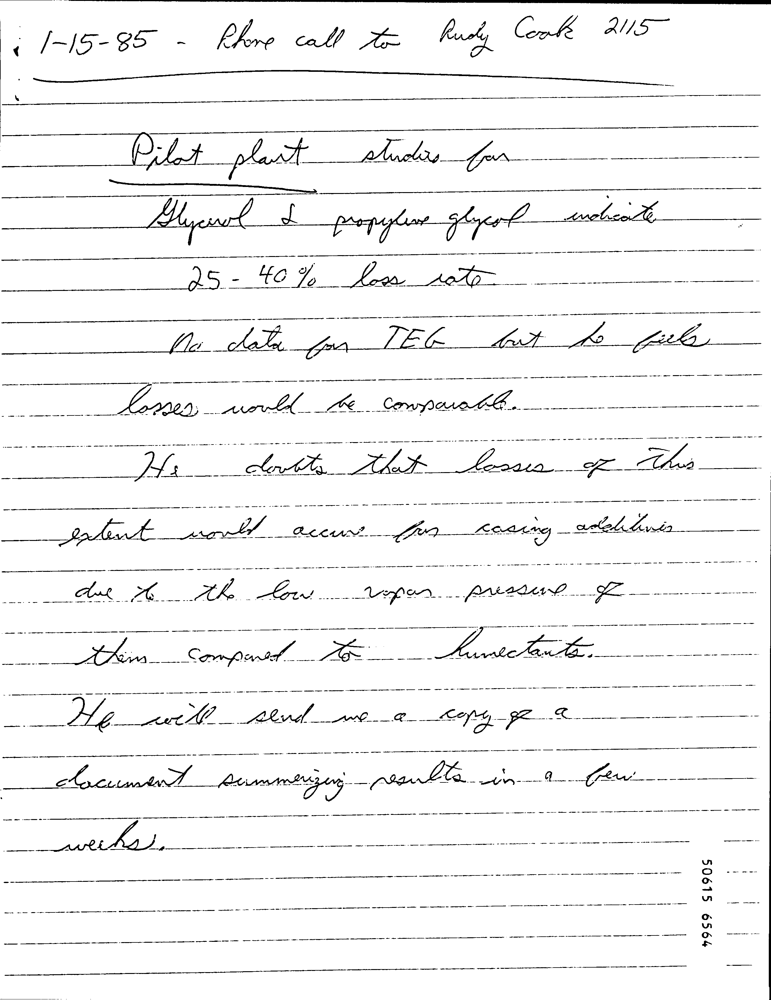 1-15-85 - Phone call to Rudy Cook 2115
Pilot plant studies for
Glycerol & propylene glycol indicate
25-40% loss rate
No data for TEG but he feels
losses would be comparable.
He doubts that losses of this
extent would occure for casing additives
due to the low vapor pressure of
them compared to humectants.
He will send me a copy of a
document summerizing results in a few
weeks.
50615 6564